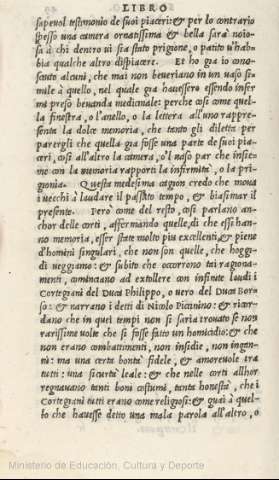 LIBRO
sapeuol testimonio de suoi piaceri: & per lo contrario
spesso una camera ornatissima & bella sarà noio-
sa à chi dentro ui sia stato prigione, o patito u'hab-
bia qualche altro dispiacere. Et ho gia io cono-
sciuto alcuni, che mai non beueriano in un uaso si-
mile à quello, nel quale gia hauessero essendo infer
mi preso beuanda medicinale: perche così come quel-
la finestra, o l'anello, o la lettera all'uno rappre-
senta la dolce memoria, che tanto gli diletta per
parergli che quella gia fosse una parte de suoi pia-
ceri, così all'altro la camera, o'l uaso par che insie-
me con la memoria rapporti la infirmità, o la pri-
gionia. Questa medesima cagion credo che moua
i uecchi à laudare il passato tempo, & biasimar il
presente. Però come del resto, così parlano an-
chor delle corti, affermando quelle, di che essi han-
no memoria, esser state molto piu excellenti, & piene
d'homini singulari, che non son quelle, che hoggi-
di ueggiamo: & subito che occorrono tai ragiona-
menti, cominciano ad extollere con infinite laudi i
Cortegiani del Duca Philippo, o uero del Duca Bor-
so: & narrano i detti di Nicolo Piccinino: & ricor-
dano che in quei tempi non si saria trouato se non
rarissime uolte che si fosse fatto un homicidio: & che
non erano combattimenti, non insidie, non ingan-
ni: ma una certa bontà fidele, & amoreuole tra
tutti: una sicurtà leale: & che nelle corti allhor
regnauano tanti boni costumi, tanta honestà, che i
Cortegiani tutti erano come religiosi: & guai à quel-
lo che hauesse detto una mala parola all'altro, o
Ministerio de Educación, Cultura y Deporte